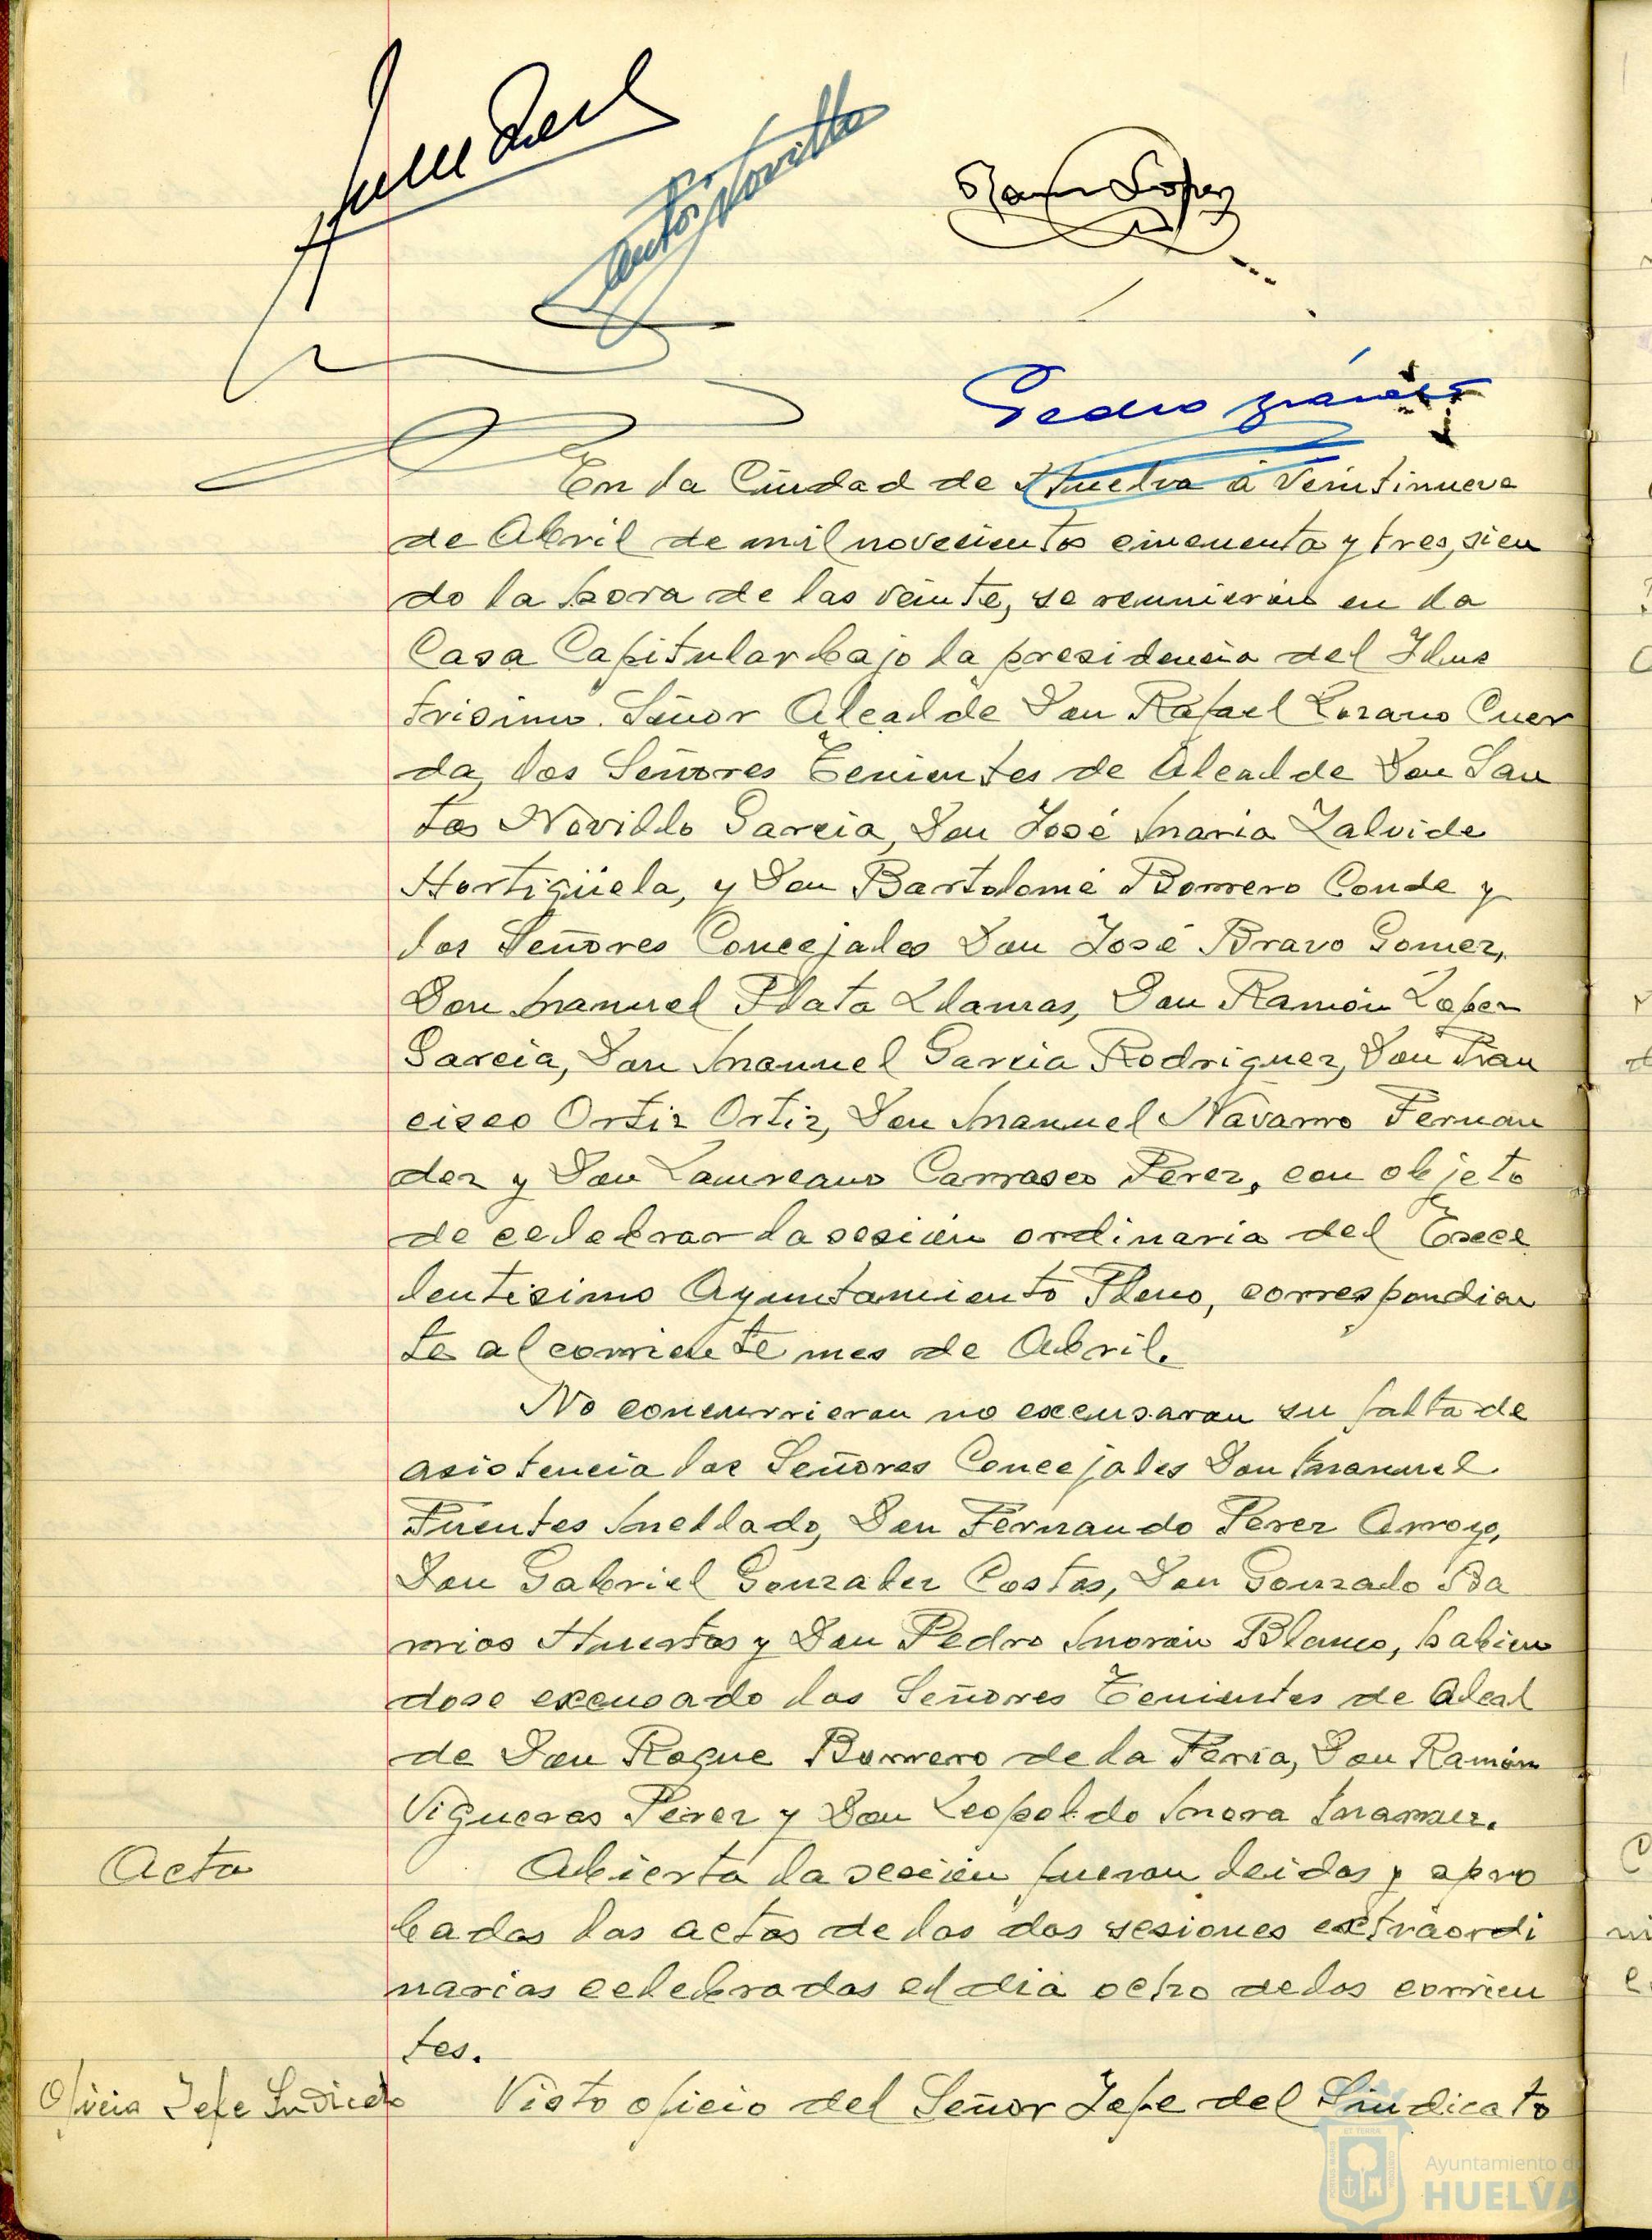 Ramón López
Pedro
En la Ciudad de Huelva a Veintinueve
de Abril de mil novecientos cincuenta y tres, sien
do la hora de las veinte, se reunieron en la
Casa Capitular bajo la presidencia del Ilus
trisimo Señor Alcalde Don Rafael Lozano Cuer
da, los Señores Tenientes de Alcalde Don San
tos Novillo Garcia, Don José Maria Zalvide
Hortigüela, y Don Bartolomé Romero Conde y
los Señores Concejales Don José Bravo Gomez,
Don Manuel Plata Llamas, Don Ramón Lopez
Garcia, Don Manuel Garcia Rodriguez, Don Fran
cisco Ortiz Ortiz, Don Manuel Navarro Fernan
dez y Don Laureano Carrasco Perez, con objeto
de celebrar la sesión ordinaria del Exce
lentisimo Ayuntamiento Pleno, correspondien
te al corriente mes de Abril.
No concurrieron no excusaron su falta de
asistencia los Señores Concejales Don Manuel
Fuentes Mellado, Don Fernando Perez Arroyo,
Don Gabriel Gonzalez Costas, Don Gonzalo Ba
rrios Huertas y Don Pedro Morán Blanco, habien
dose excusado los Señores Tenientes de Alcal
de Don Roque Borrero de la Feria, Don Ramón
Vigueras Perez y Don Leopoldo Mora
Acta
Abierta la sesión fueron leidas y apro
badas las actas de las dos sesiones extraordi
narias celebradas el dia ocho de los corrien
tes.
Oficio Jefe Sindicato
Visto oficio del Señor Jefe del Sindicato
Ayuntamiento de
HUELVA